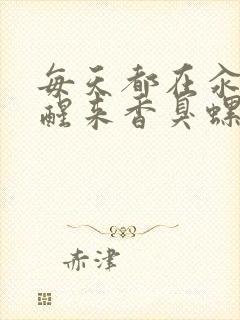 每天都在汆
醒来香臭螺
赤津